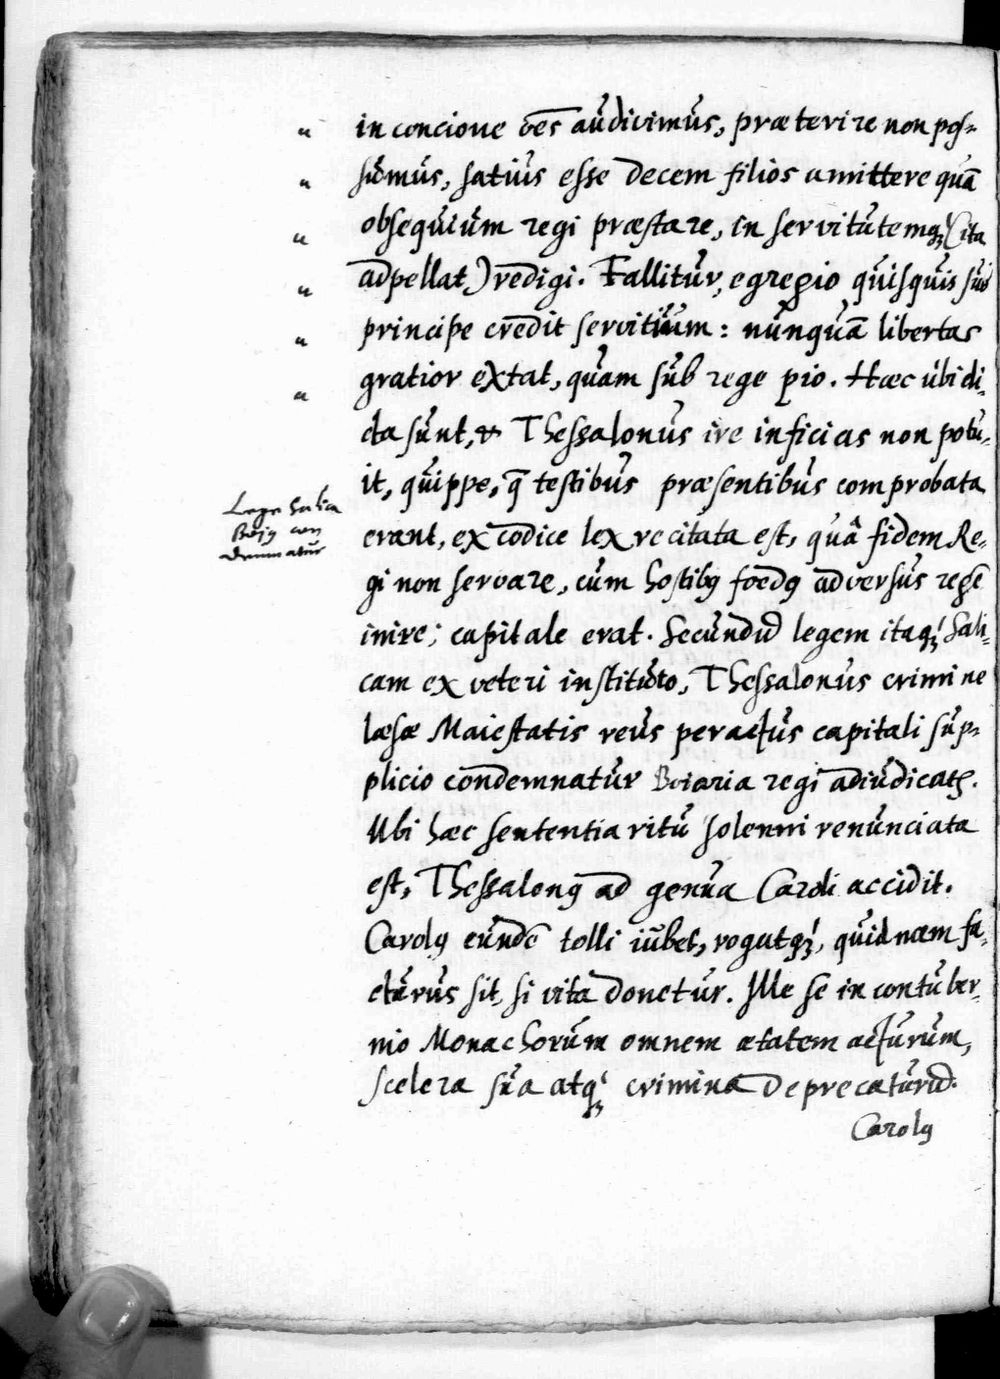 „ in concione oēs audivimus, præterire non pos-
„ sumus, satius esse decem filios amittere quā
„ obsequium regi præstare, in servitutemqꝫ (ita
„ adpellat) redigi. Fallitur, egregio quisquis sub
„ principe credit servitium: nunquā libertas
„ gratior extat, quam sub rege pio. Hæc ubi di-
cta sunt, & Thessalonus ire inficias non potu-
it, quippe, q̄ testibus præsentibus comprobata
Lege Salica
Boiꝯ con
demnatur
erant, ex codice lex recitata est, quâ fidem Re-
gi non servare, cum hostibꝯ foedꝯ adversus regē
inire; capitale erat. Secundū legem itaqꝫ Sali-
cam ex veteri instituto, Thessalonus crimine
læsæ Maiestatis reus peractus capitali sup-
plicio condemnatur Boiaria regi adiudicatꝭ.
Ubi hæc sententia ritu solenni renunciata
est, Thessalonꝯ ad genua Caroli accidit.
Carolꝯ eundē tolli iubet, rogatqꝫ, quidnam fa-
cturus sit, si vita donetur. Ille se in contuber-
nio Monachorum omnem ætatem acturum,
scelera sua atqꝫ crimina deprecaturū.
Carolꝯ